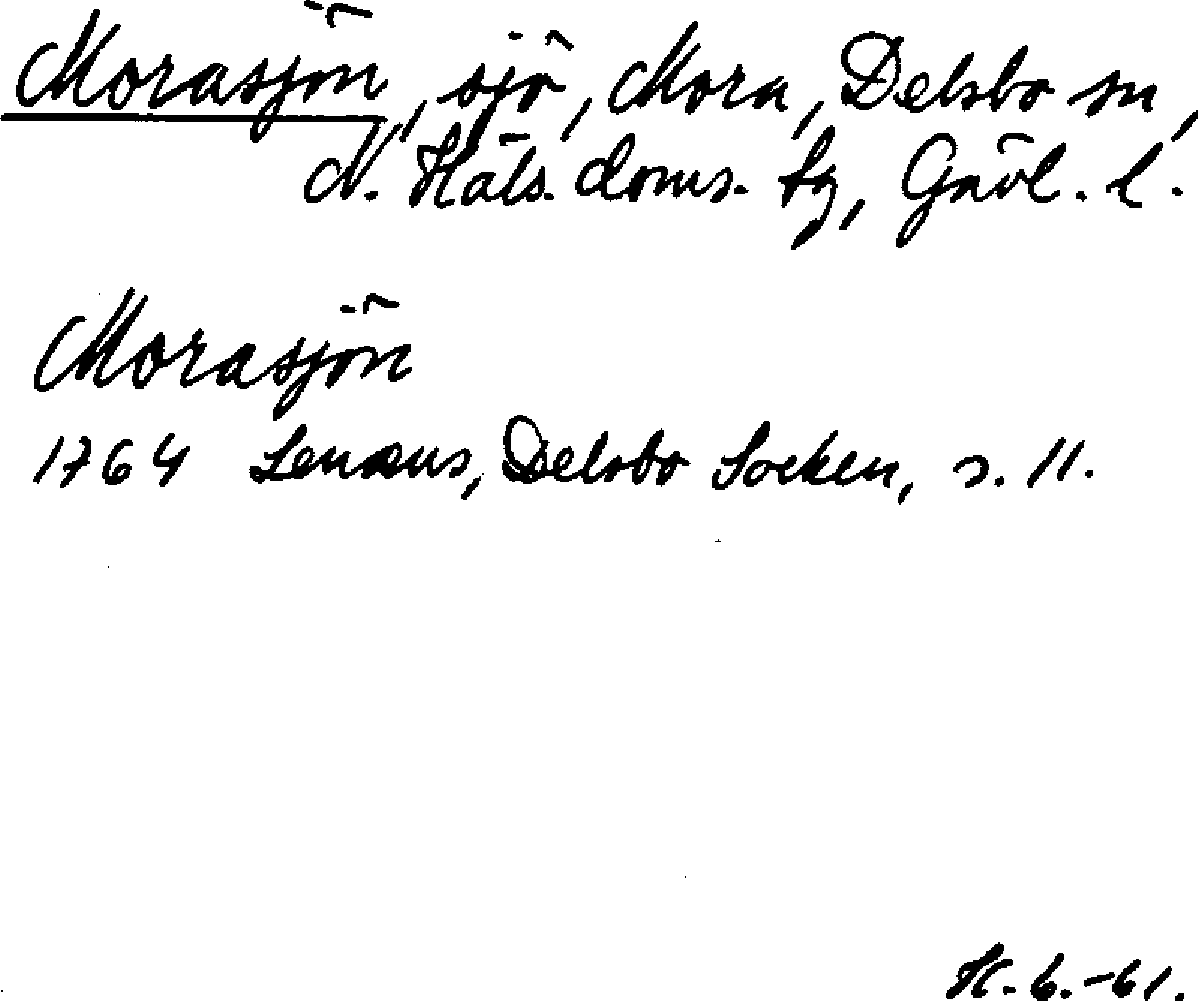 Morasjön, sjö, Mora, Delsbo sn,
N. Häls. doms. tg, Gävl. l.
Morasjön
1764 Lenæus, Delsbo Socken, s. 11.
H. 6.-61.